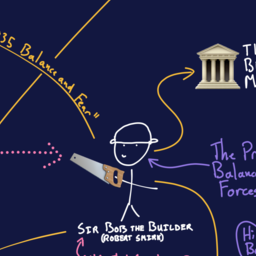 35 Balance and Fear"
TH
B
M
The Pr
Balanc
Forces
SIR BOB THE BUILDER
(ROBERT SMIRK)
Hi
B